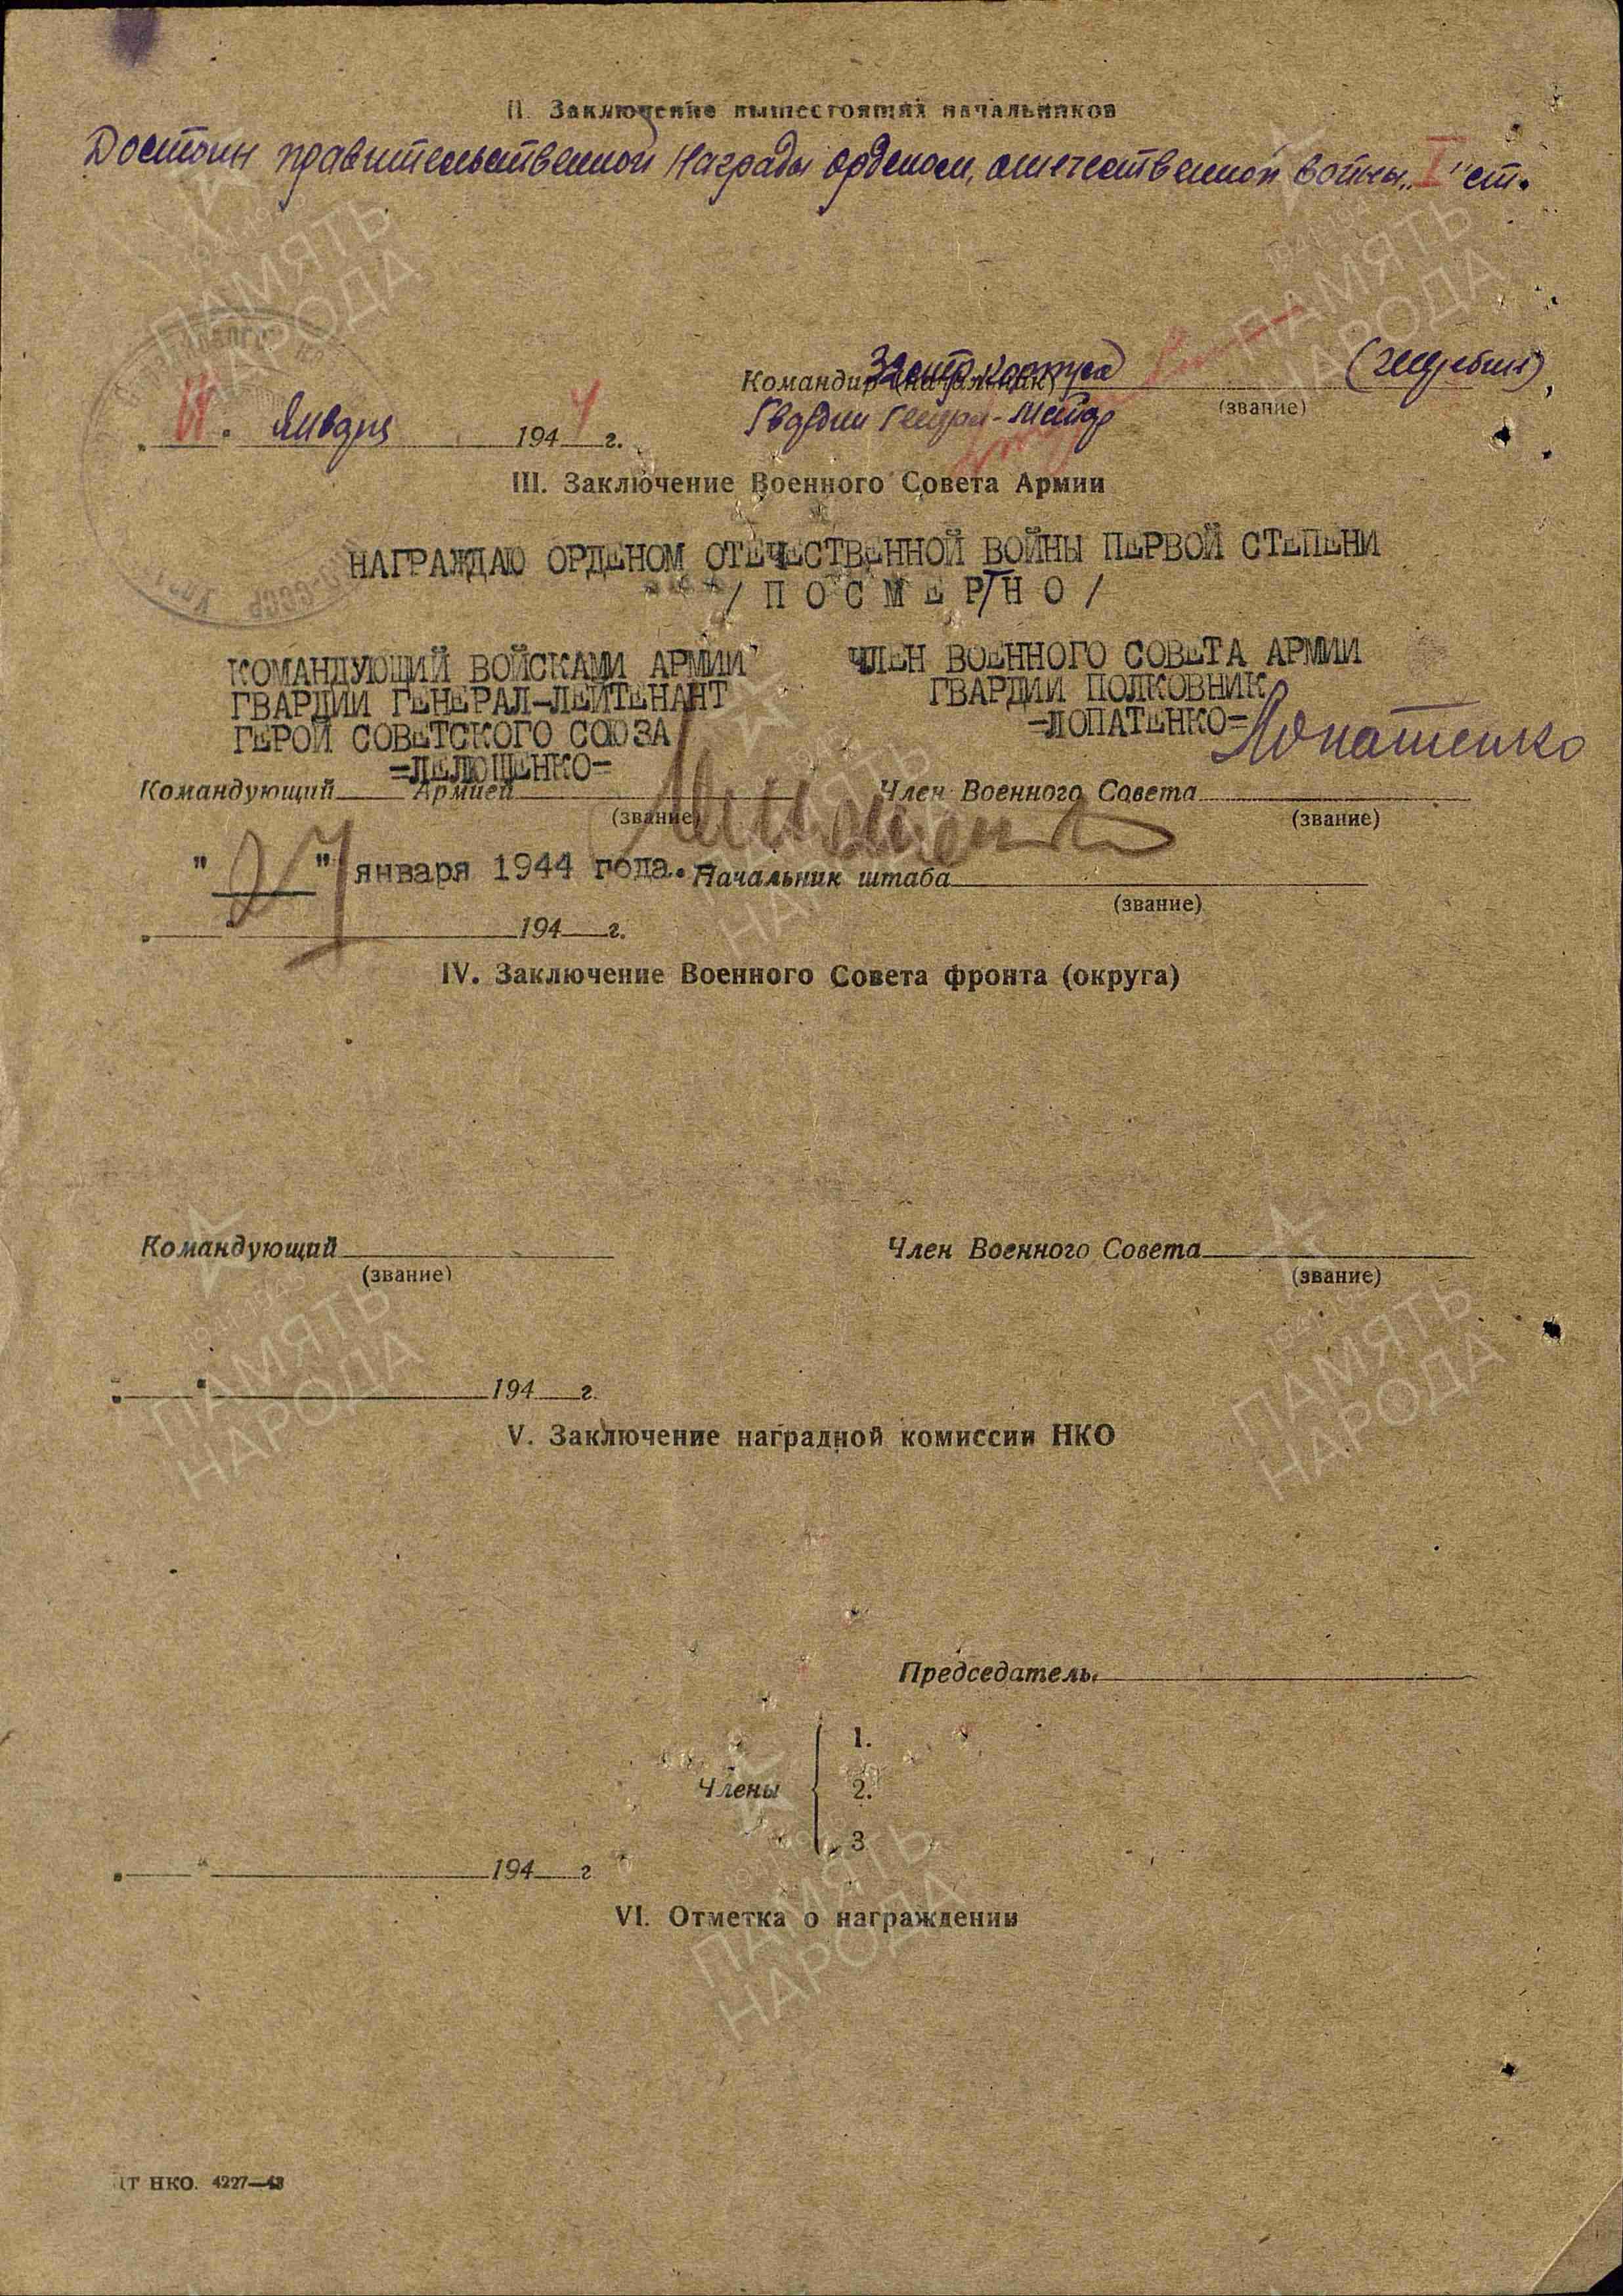 II. Заключение вышестоящих начальников
Достоин правительственной Награды орденом, отечественной войны „I" ст.
Командир (начальник) 32 стр. корпуса (Жеребин)
(звание)
Гвардии Генерал-Майор
января 1944 г.
III. Заключение Военного Совета Армии
НАГРАЖДАЮ ОРДЕНОМ ОТЕЧЕСТВЕННОЙ ВОЙНЫ ПЕРВОЙ СТЕПЕНИ
/ПОСМЕРТНО/
КОМАНДУЮЩИЙ ВОЙСКАМИ АРМИИ
ГВАРДИИ ГЕНЕРАЛ-ЛЕЙТЕНАНТ
ГЕРОЙ СОВЕТСКОГО СОЮЗА
=ЛЕЛЮЩЕНКО=
ЧЛЕН ВОЕННОГО СОВЕТА АРМИИ
ГВАРДИИ ПОЛКОВНИК
=ЛОПАТЕНКО= Лопатенко
Командующий Армией
(звание)
Член Военного Совета
(звание)
"27" января 1944 года.
Начальник штаба
(звание)
194 г.
IV. Заключение Военного Совета фронта (округа)
Командующий
(звание)
Член Военного Совета
(звание)
194 г.
V. Заключение наградной комиссии НКО
Председатель
Члены
1.
2.
3
194 г
VI. Отметка о награждении
НКО. 4227—43
ПАМЯТЬ НАРОДА
1941-1945